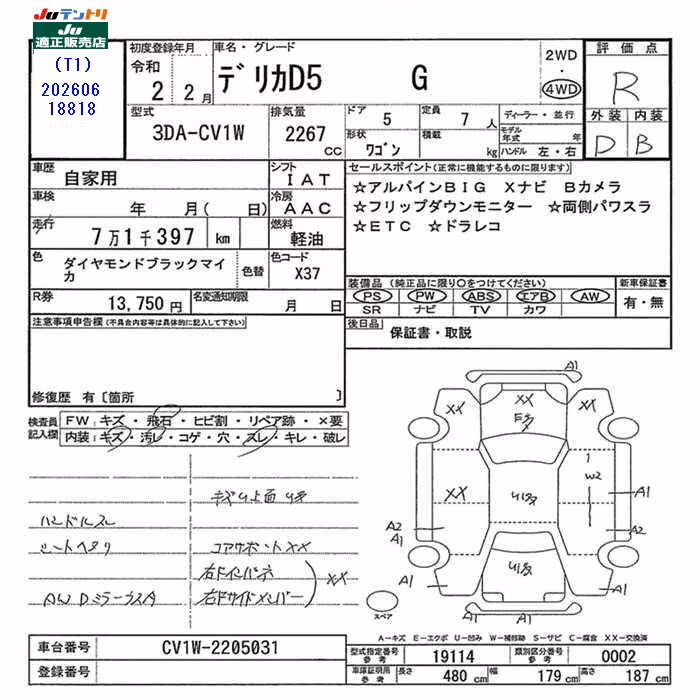 JUテントリ
JU
適正販売店
(T1)
202606
18818
初度登録年月
令和
2 2月
車名・グレード
デリカD5 G
2WD
・
4WD
評価点
R
外装 内装
D B
型式
3DA-CV1W
排気量
2267
CC
ドア
5
定員
7 人
形状
ワゴン
積載
kg
ディーラー・並行
モデル年式 年
ハンドル 左・右
車歴
自家用
シフト
IAT
車検
年 月( 日)
冷房
AAC
走行
7万1千397 km
燃料
軽油
色
ダイヤモンドブラックマイカ
色替
色コード
X37
R券
13,750 円
名変通知期限
月 日
セールスポイント(正常に機能するものに限ります)
☆アルパインBIG Xナビ Bカメラ
☆フリップダウンモニター ☆両側パワスラ
☆ETC ☆ドラレコ
装備品(純正品に限り○をつけてください)
PS PW ABS エアB AW
SR ナビ TV カワ
新車保証書
有・無
後日品
保証書・取説
注意事項申告欄(不具合内容等は具体的に記入して下さい)
修復歴 有〔箇所 〕
検査員
記入欄
FW:キズ・飛石・ヒビ割・リペア跡・×要
内装:キズ・汚レ・コゲ・穴・スレ・キレ・破レ
ハンドルスレ
シートヘタリ
AW Dミラーラス A
コアサポートXX
右FインパネXX
右Fサイドメンバー
A1
XX
XX
XX
XX
W2
A1
A2
A1
A2
A1
A1
A1
スペア
A-キズ E-エクボ U-凹み W-補修跡 S-サビ C-腐食 XX-交換済
車台番号
CV1W-2205031
登録番号
型式指定番号
参考
19114
類別区分番号
参考
0002
車庫証明用
参考
長さ
480 cm
幅
179 cm
高さ
187 cm